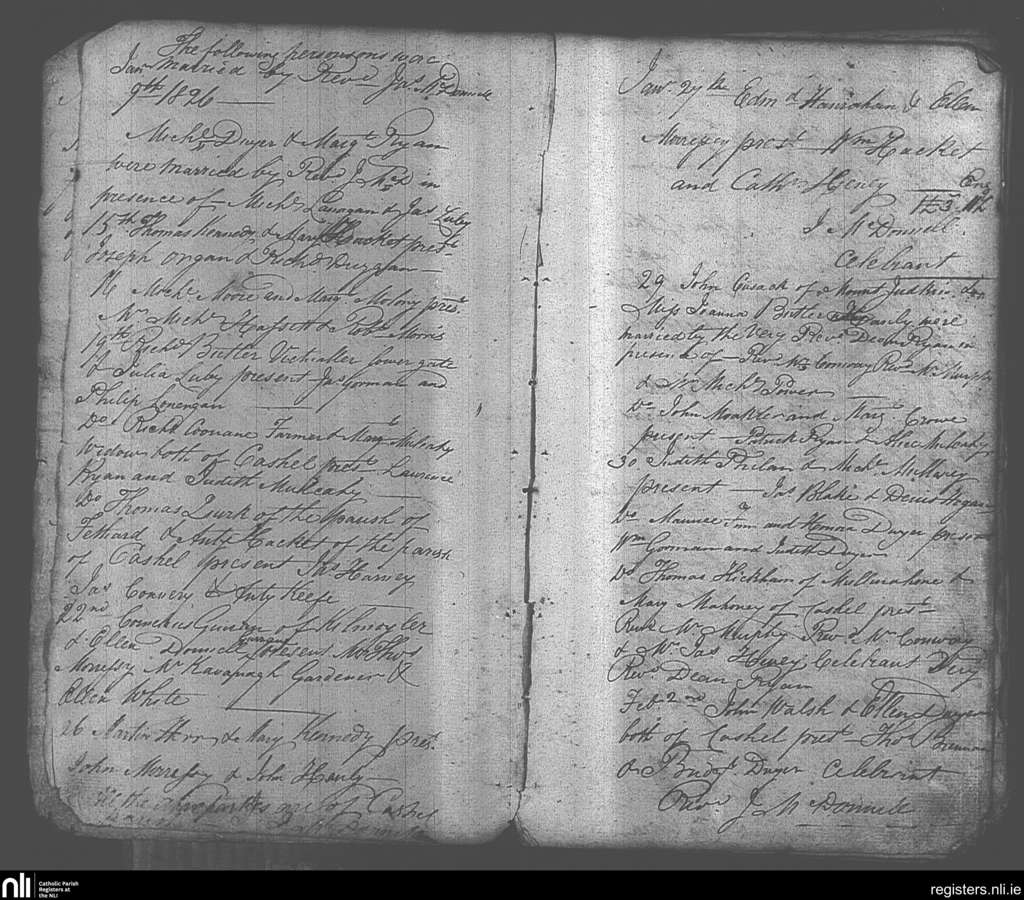 The following persons was
Married by Revd Jas McDonnell
Jany
9th 1826
Michl Dwyer & Margt Ryan
were married by Revd J McD in
presence of Michl Lanagan & Jas Luby
15th Thomas Kennedy & Mary Hacket prest
Joseph Organ & Richd Duggan
16 Michl Moore and Mary Molony prest
Mr Michl Hassett & Robt Morris
19th Richd Butler Victualler lowergate
& Julia Luby present Jas Gorman and
Philip Lonergan
Do Richd Farmer & Mulcahy
Widow both of Cashel prest Lawrence
Ryan and Judith Mulcahy
Do Thomas Quirk of the parish of
Fethard & Hacket of the parish
of Cashel present Jas Harvey
Jas & Keefe
22nd Cornelius of Kilmoyler
& Ellen present Mr Thos
Morressy Mr Kavanagh Gardener &
Ellen White
26 Martin & Mary Kennedy prest
John Morressy & John Hanly
the parties are of Cashel
Jany 27th Edmd Hanrahan & Ellen
Morressy prest Wm Hacket
and Cathn Heney
J McDonnell
Celebrant
29 John Cusack of Mount Judkin
Miss Joanna Butler were
married by the Very Revd Dean Ryan in
presence of Revd Mr Conway Revd Mr Murphy
& Mr Michl Power
Do John and Margt Crowe
present Patrick Ryan & Alice Mulcahy
30 Judith Phelan & Michl
present Jas Blake & Denis Hogan
Do Maurice and Honora Dwyer present
Wm Gorman and Judith Dwyer
Do Thomas Hickham of Mullinahone &
Mary Mahoney of Cashel prest
Revd Mr Murphy Revd Mr Conway
& Mr Jas Heney Celebrant Very
Revd Dean Ryan
Feb 2nd John Walsh & Ellen Dwyer
both of Cashel prest Thos Brennan
& Bridgt Dwyer Celebrant
Revd J McDonnell
nli
Catholic Parish
Registers at
the NLI
registers.nli.ie